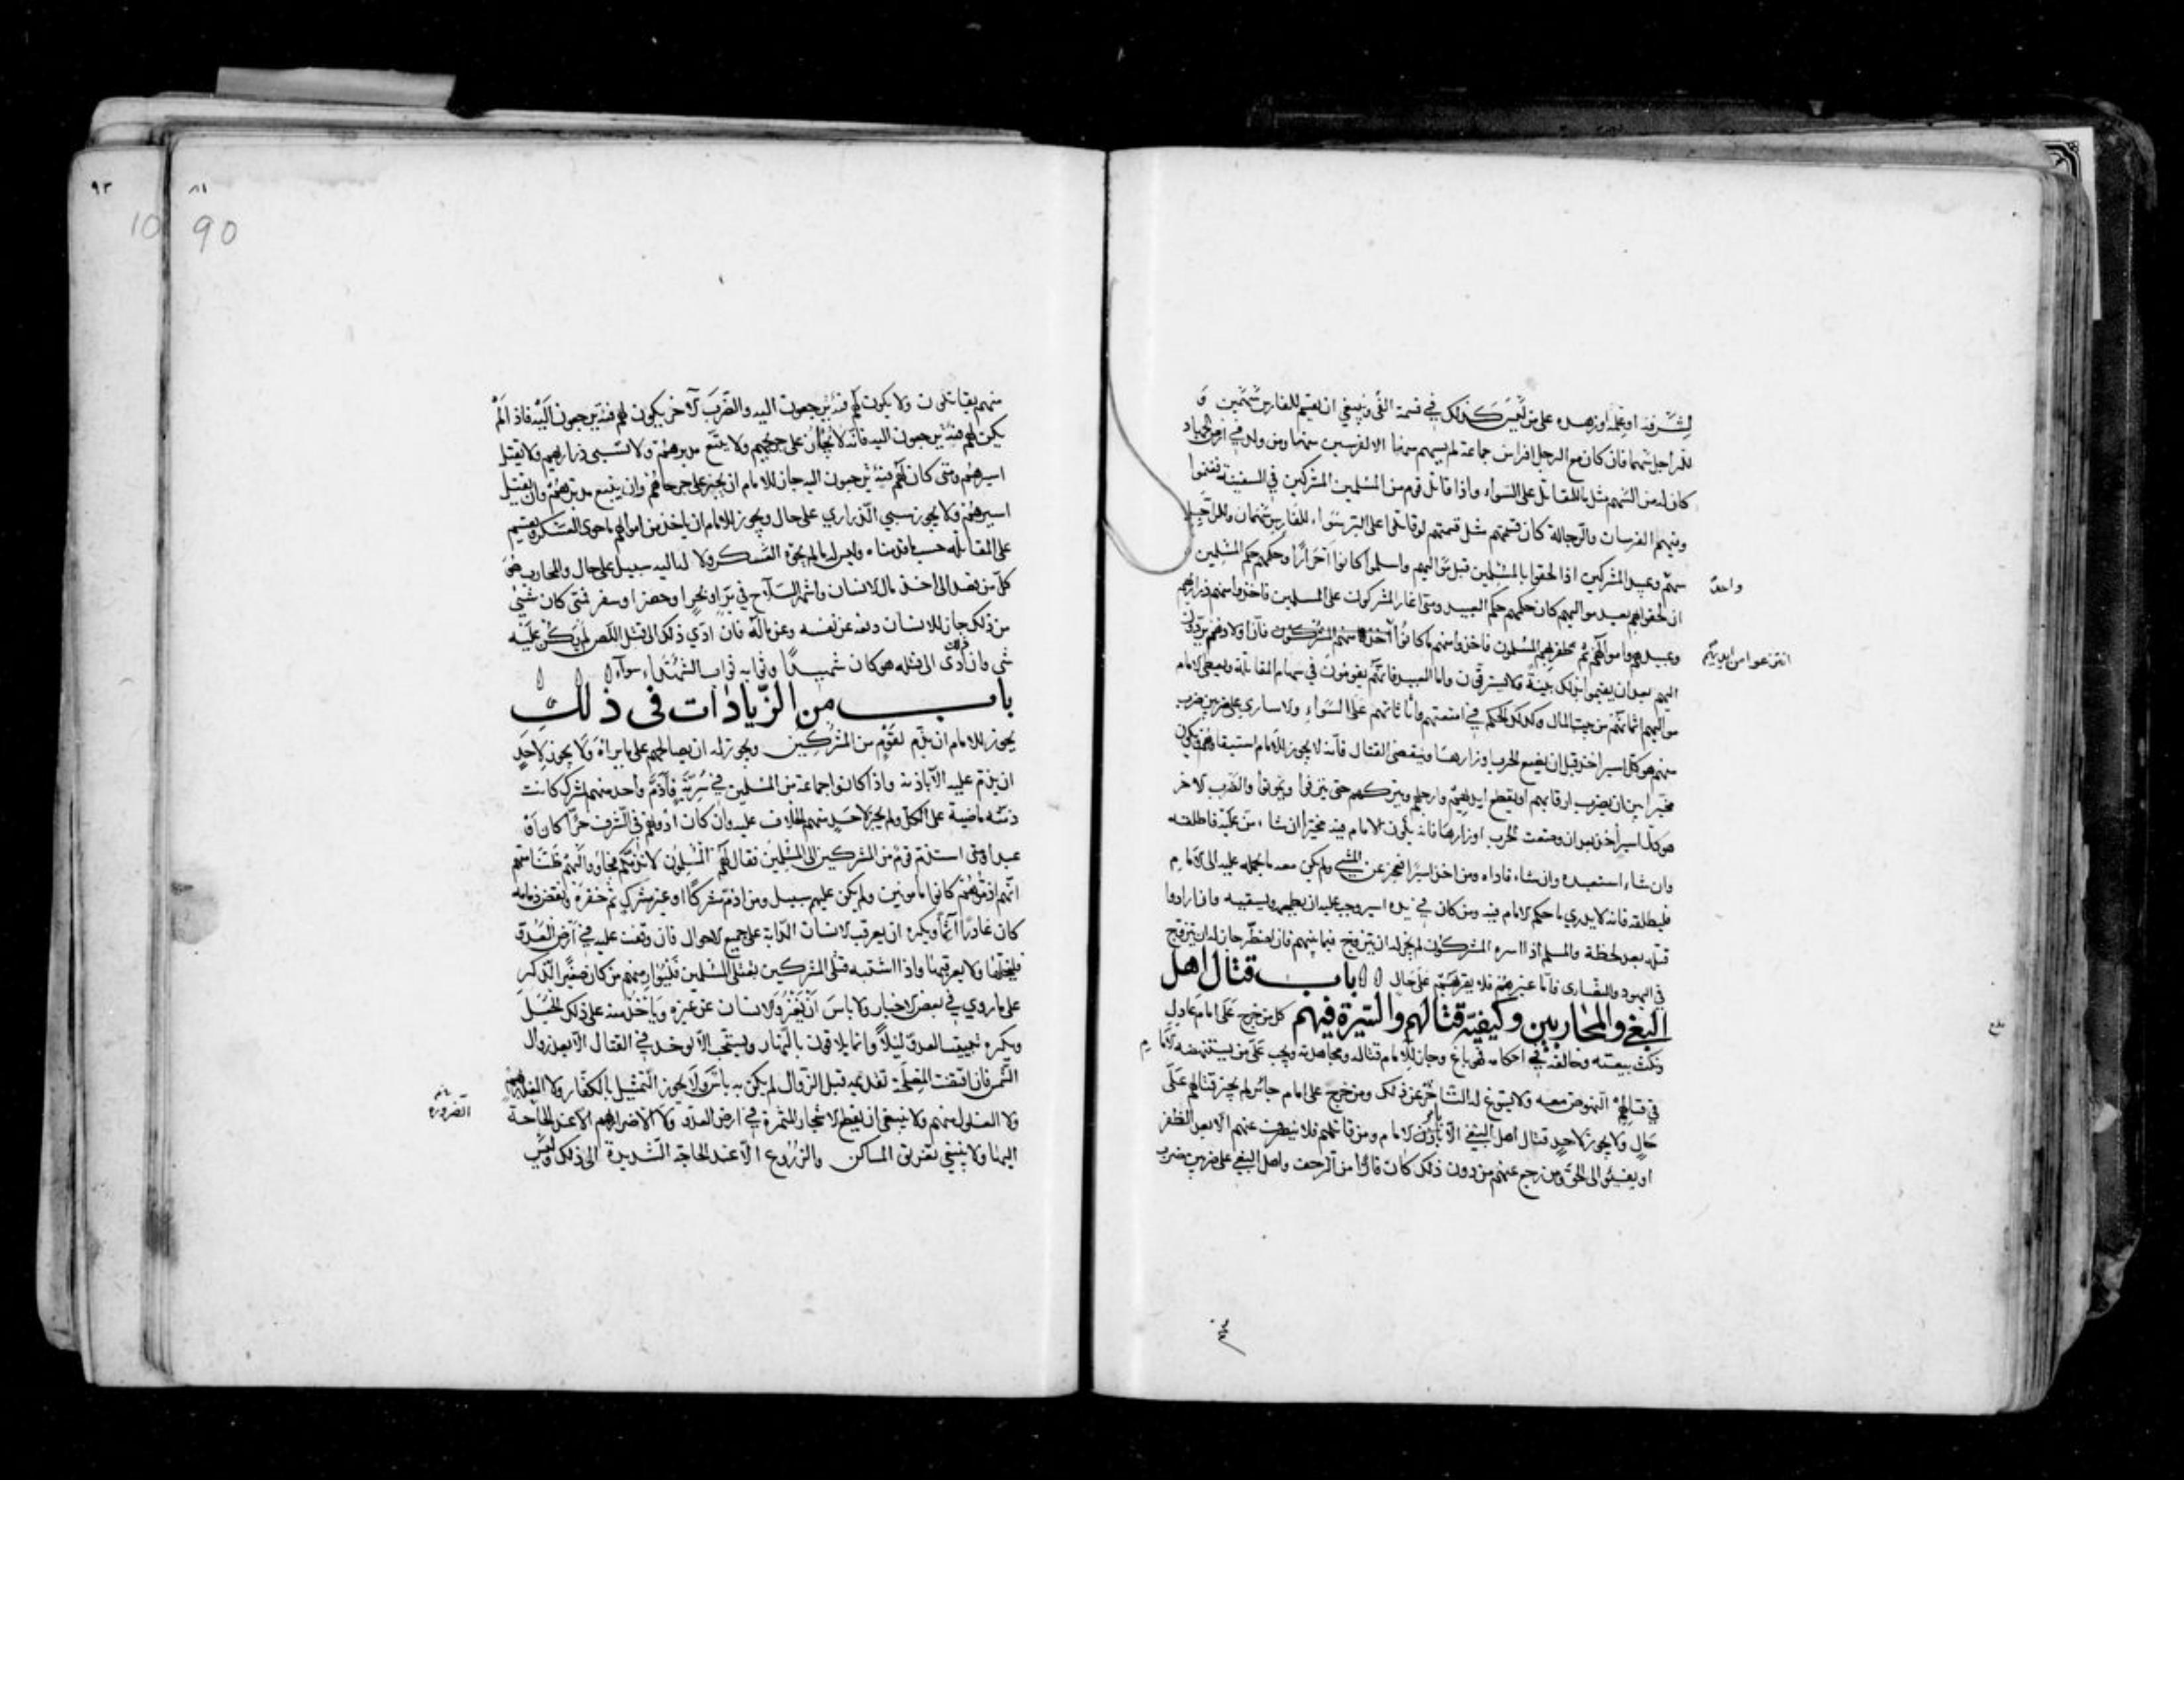 لشرفه او علمه او زهده على من ليس كذلك في قسمة الفى وينبغي ان يقسم للفارس سهمين و
للراجل سهما فان كان مع الرجل افراس جماعة لم يسهم منها الا لفرسين منها ومن ولد في ارض الجهاد
كان له من السهم مثل ما للمقاتل على السواء واذا قاتل قوم من المسلمين المشركين في السفينة فغنموا
وفيهم الفرسان والرجالة كان قسمتهم مثل قسمتهم لو قاتلوا على البر سواء للفارس سهمان وللراجل
سهم وعبيد المشركين اذا لحقوا بالمسلمين قبل مواليهم واسلموا كانوا احرارا وحكمهم حكم المسلمين
ان لحقوا بهم بعد مواليهم كان حكمهم حكم العبيد ومتى اغار المشركون على المسلمين فاخذوا منهم ذراريهم
وعبيدهم واموالهم ثم ظفر بهم المسلمون فاخذوا منهم ما كانوا اخذوا منهم المشركون فان اولادهم يردون
اليهم بعد ان يقيموا بذلك بينة ولا يسترقون واما العبيد فانهم يقومون في سهام المقاتلة ويعطي الامام
مواليهم اثمانهم من بيت المال وكذلك الحكم في امتعتهم واثاثاتهم على السواء والاسارى على ضربين ضرب
منهم هو كل اسير اخذ قبل ان تضع الحرب اوزارها وينقضى القتال فانه لا يجوز للامام استبقاؤهم ويكون
مخيرا بين ان يضرب ارقابهم او يقطع ايديهم وارجلهم ويتركهم حتى ينزفوا ويموتوا والضرب الاخر
هو كل اسير اخذ بعد ان وضعت الحرب اوزارها فانه يكون الامام فيه مخيرا ان شاء من عليه فاطلقه
وان شاء استعبده وان شاء فاداه ومن اخذ اسيرا فعجز عن المشي ولم يكن معه ما يحمله عليه الى الامام
فليطلقه فانه لا يدري ما حكم الامام فيه ومن كان في يده اسير وجب عليه ان يطعمه ويسقيه وان ارادوا
قتله بعد لحظة والمسلم اذا اسره المشركون لم يجز له ان يتزوج فيما بينهم فان اضطر جاز له ان يتزوج
في اليهود والنصارى فاما غيرهم فلا يقربهم على حال باب قتال اهل
البغي والمحاربين وكيفية قتالهم والسيرة فيهم كل من خرج على امام عادل
ونكث بيعته وخالفه في احكامه فهو باغ وجاز للامام قتاله ومجاهدته ويجب على من يستنهضه الامام
في قتالهم النهوض معه ولا يسوغ له التاخر عن ذلك ومن خرج على امام جائر لم يجز قتالهم على
حال ولا يجوز لاحد قتال اهل البغي الا بامر الامام ومن قاتلهم فلا ينصرف عنهم الا بعد الظفر
او يفيئوا الى الحق ومن رجع عنهم من دون ذلك كان فارا من الزحف واهل البغي على ضربين ضرب
واحد
انتزعوا من ايديهم
بلغ
منهم
٩٢
٨١
10
90
منهم يقاتلون ولا يكون لهم فئة يرجعون اليه والضرب الاخر يكون لهم فئة يرجعون اليه فاذا لم
يكن لهم فئة يرجعون اليه فانه لا يجاز على جريحهم ولا يتبع مدبرهم ولا تسبى ذراريهم ولا يقتل
اسيرهم ومتى كان لهم فئة يرجعون اليه جاز للامام ان يجيز على جرحاهم وان يتبع مدبرهم وان يقتل
اسيرهم ولا يجوز سبي الذراري على حال ويجوز للامام ان ياخذ من اموالهم ما حوى العسكر ويقسم
على المقاتلة حسب ما قدمناه وليس له ما لم يحوه العسكر ولا له اليه سبيل على حال والمحارب هو
كل من قصد الى اخذ مال الانسان واشهر السلاح في بر او بحر او حضر او سفر فمتى كان شيء
من ذلك جاز للانسان دفعه عن نفسه وعن ماله فان ادي ذلك الى قتل اللص لم يكن عليه
شي وان ادى ذلك الى قتله هو كان شهيدا وثوابه ثواب الشهداء سواء
باب من الزيادات في ذلك
يجوز للامام ان يذم لقوم من المشركين ويجوز له ان يصالحهم على ما يراه ولا يجوز لاحد
ان يذم عليه الا باذنه واذا كانوا جماعة من المسلمين في سرية فاذم واحد منهم لمشرك كانت
ذمته ماضية على الكل ولم يجز لاحد منهم الخلاف عليه وان كان ادونهم في الشرف حرا كان او
عبدا ومتى استذم قوم من المشركين الى المسلمين فقال لهم المسلمون لا نذمكم فجاؤوا اليهم ظنا منهم
انهم اذموهم كانوا مامونين ولم يكن عليهم سبيل ومن اذم مشركا او غير مشرك ثم خفره ونقض ذمامه
كان غادرا آثما ويكره ان يعرقب الانسان الدابة على جميع الاحوال فان وقفت عليه في ارض العدو
فليخلها ولا يعرقبها واذا اشتبه قتلى المشركين بقتلى المسلمين فليوار منهم من كان صغير الذكر
على ما روي في بعض الاخبار ولا باس ان يغزو الانسان عن غيره وياخذ منه على ذلك الجعل
ويكره تبييت العدو ليلا وانما يلاقون بالنهار ويستحب الا يوخذ في القتال الا بعد زوال
الشمس فان اقتضت المصلحة تقديمه قبل الزوال لم يكن به باس ولا يجوز التمثيل بالكفار ولا الغدر بهم
ولا الغلول منهم ولا ينبغي ان يقطع الاشجار المثمرة في ارض العدو ولا الاضرار بهم الا عند الحاجة
اليها ولا ينبغي تغريق المساكن والزروع الا عند الحاجة الشديدة الى ذلك وليس
الضرورة